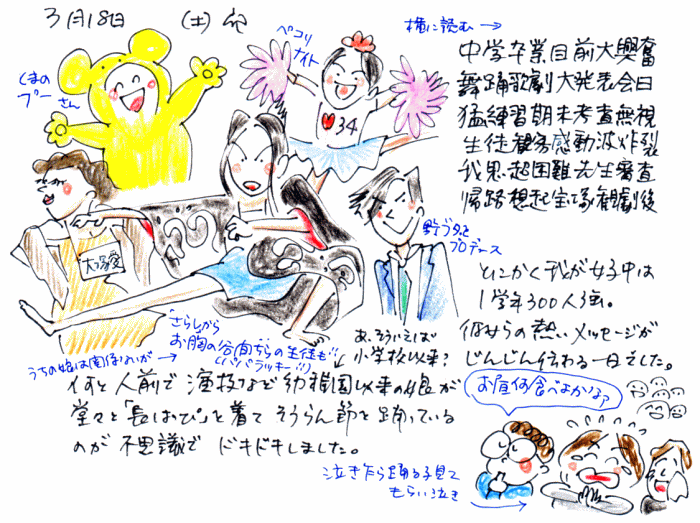 3月18日 (土)
横に読む→
ペコリ
ナイト
くまの
プーさん
34
中学卒業目前大興奮
舞踊歌劇大発表会日
猛練習期末考査無視
生徒観客感動波炸裂
我思超困難先生審査
帰路想起宝塚観劇後
大塚愛
野ブタと
プロデュース
とにかく我が女子中は
1学年300人強。
彼女らの熱いメッセージが
じんじん伝わる一日でした。
さらしから
お胸の谷間ちらの生徒も!!
(パパラッキー!!)
うちの娘は関係ないが→
あ、そういえば
小学校以来?
何と人前で演技など幼稚園以来の娘が
堂々と「長はっぴ」を着てそうらん節を踊っている
のが不思議でドキドキしました。
お昼何食べよかなァ
泣きながら踊る子見て
もらい泣き